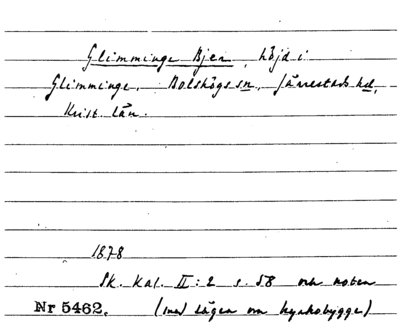 Glimminge Bjer, höjd i
Glimminge, Bolshögs sn, Järrestads hd,
Krist. län.
1878
Sk. Kal. II: 2 s. 58 och noten
Nr 5462. (med sägen om kyrkobygge)